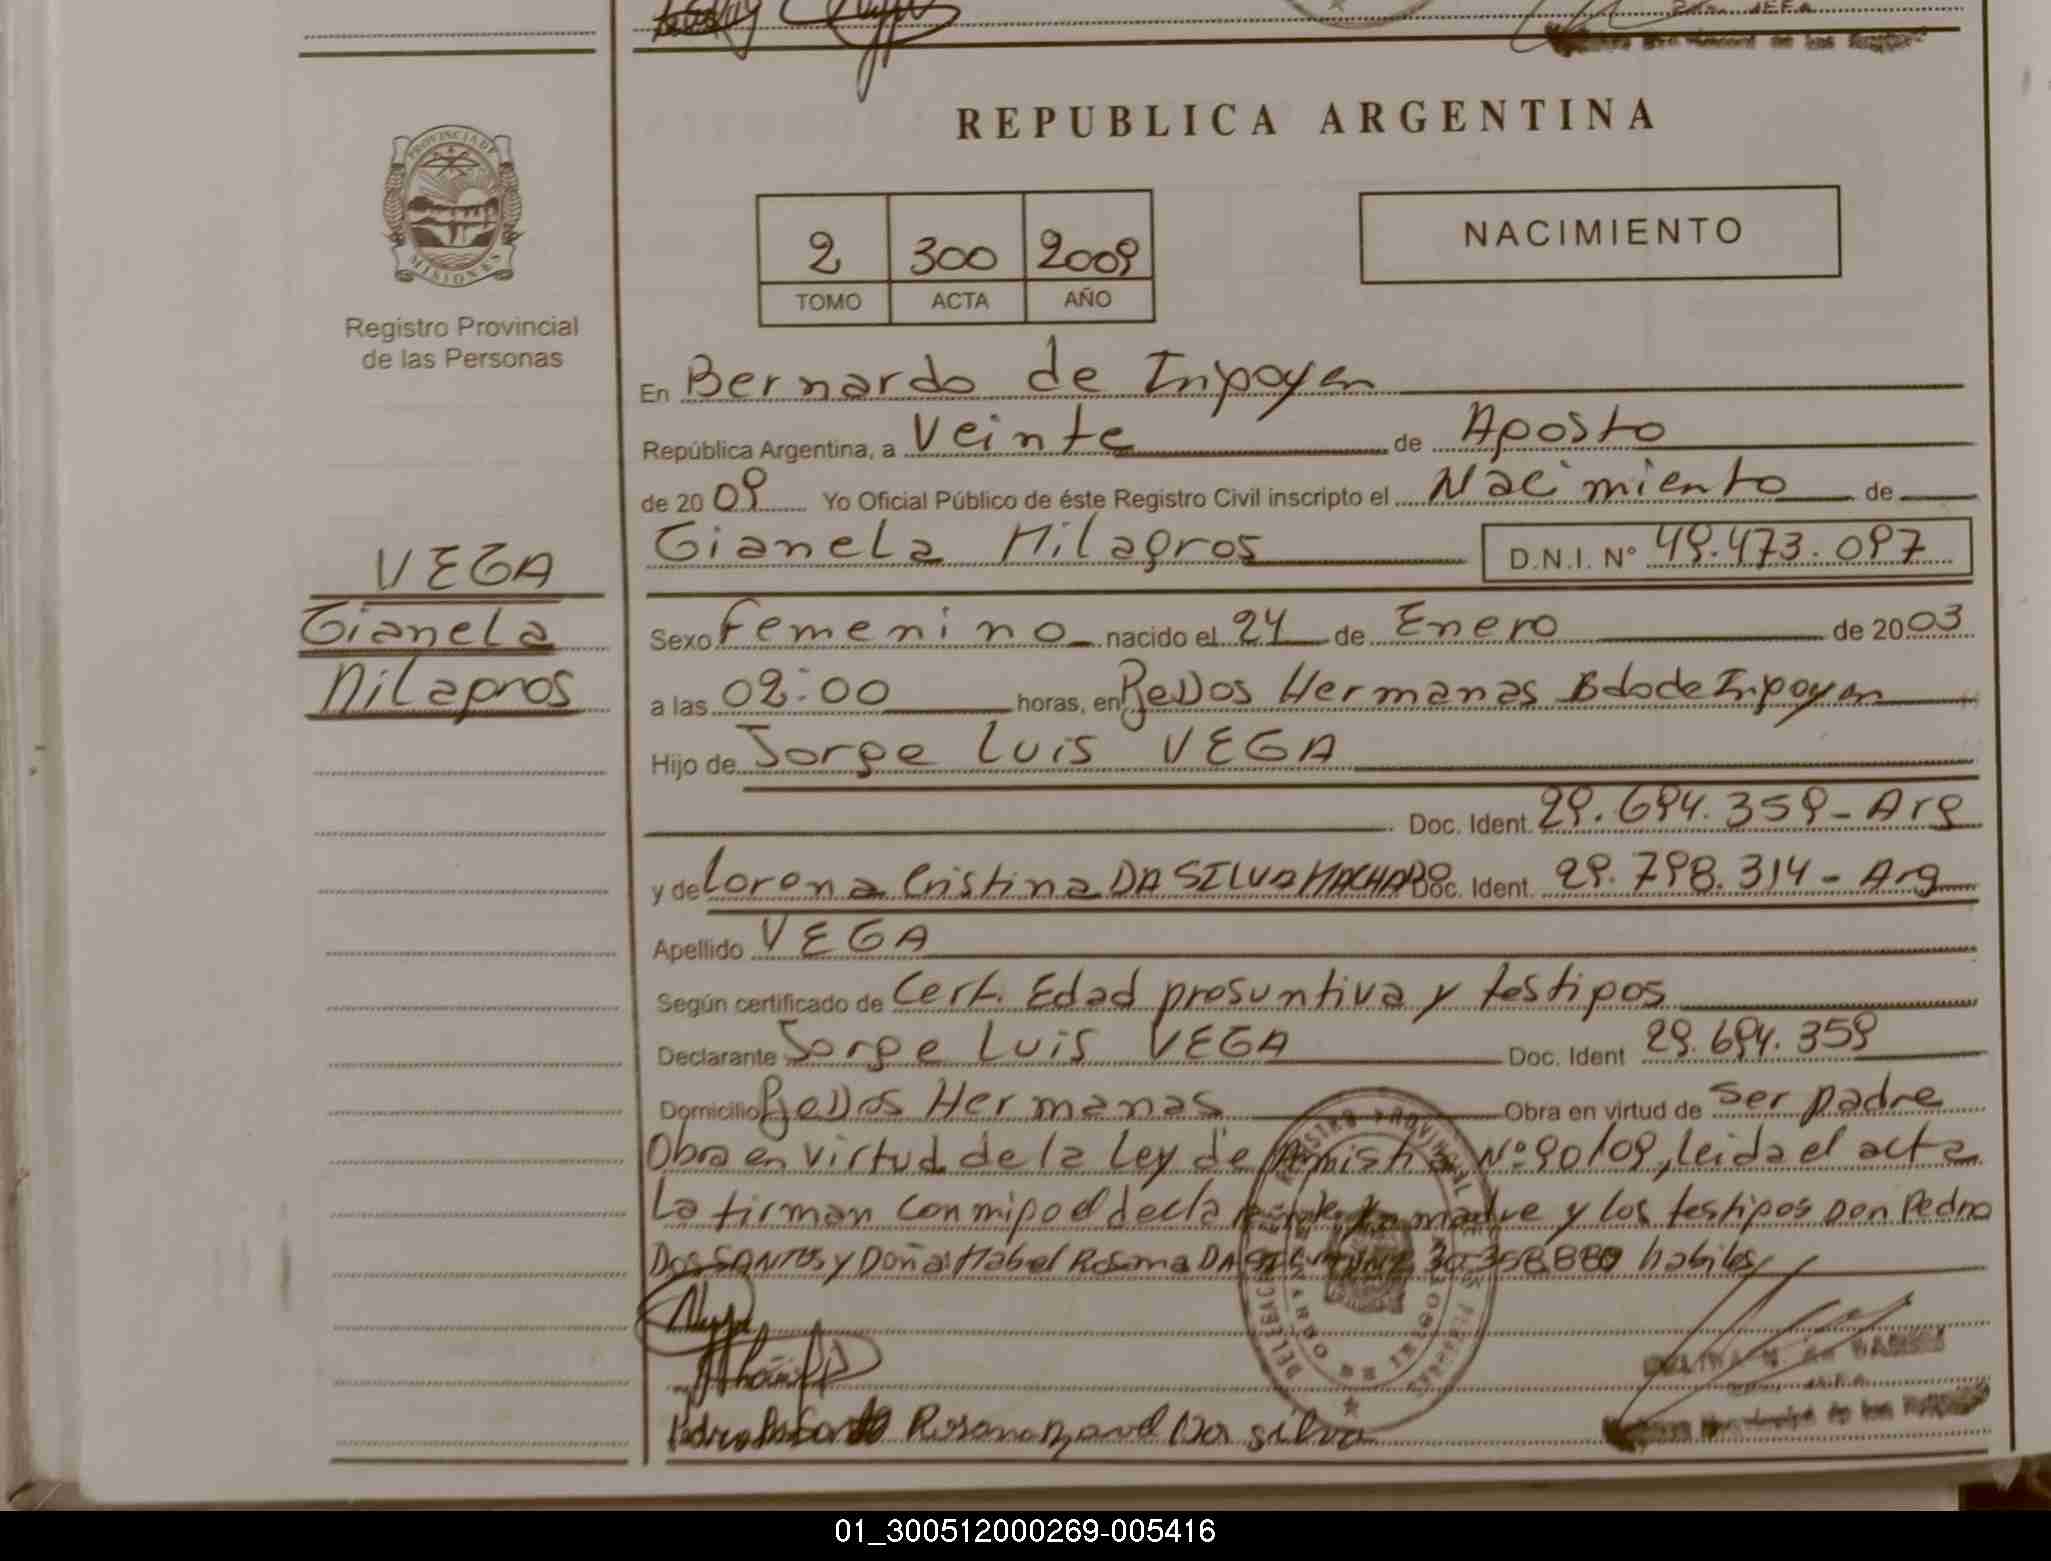 REPUBLICA ARGENTINA
PROVINCIA DE MISIONES
Registro Provincial
de las Personas
2 300 2009
TOMO ACTA AÑO
NACIMIENTO
En Bernardo de Irigoyen
República Argentina, a Veinte de Agosto
de 2009 Yo Oficial Público de éste Registro Civil inscripto el Nacimiento de
Gianela Milagros D.N.I. Nº 49.473.097
VEGA
Gianela
Milagros
Sexo Femenino nacido el 24 de Enero de 2003
a las 02:00 horas, en Hermanas Bdo de Irigoyen
Hijo de Jorge Luis VEGA
Doc. Ident. 29.694.359 - Arg
y de Lorena Cristina DA SILVA MACHADO Doc. Ident. 29.798.314 - Arg
Apellido VEGA
Según certificado de Cert. Edad presuntiva y testigos
Declarante Jorge Luis VEGA Doc. Ident 29.694.359
Domicilio Hermanas Obra en virtud de ser padre
Obra en virtud de la Ley de Amistia Nº 90/09, leida el acta
La firman conmigo el declarante la madre y los testigos Don Pedro
DOS SANTOS y Doña: Mabel Rosana DA SILVA 30.358.880 habiles
Rosana Da silva
01_300512000269-005416